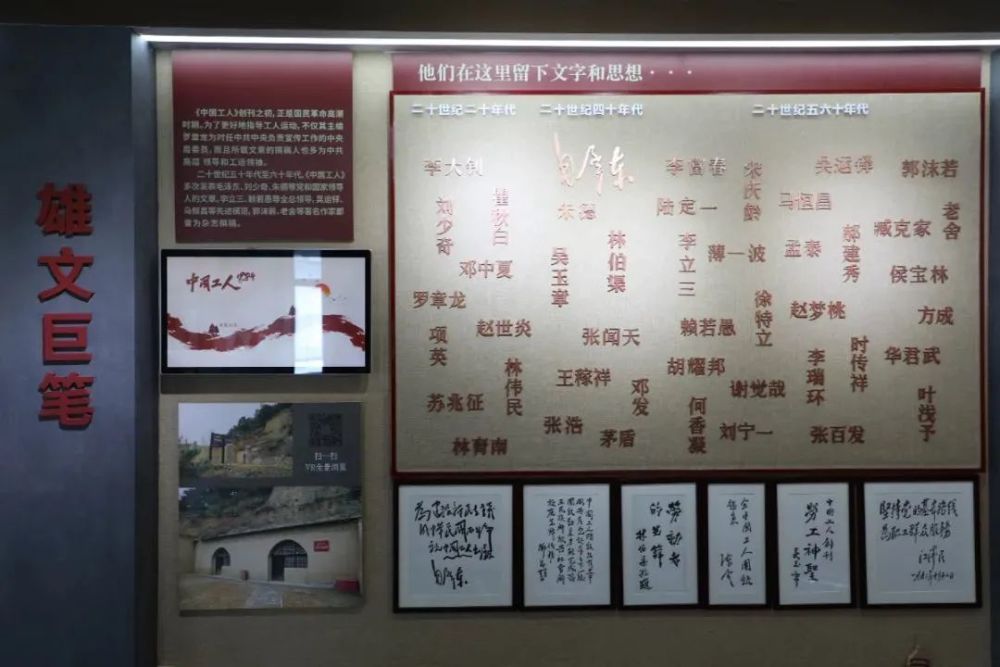 雄文巨笔
《中国工人》创刊之初，正是国民革命高潮
时期。为了更好地指导工人运动，不仅其主编
罗章龙为时任中共中央负责宣传工作的中央
局委员，而且所载文章的撰稿人也多为中共
高层 领导和工运领袖。
二十世纪五十年代至六十年代，《中国工人》
多次发表毛泽东、刘少奇、朱德等党和国家领导
人的文章，李立三、赖若愚等全总领导，吴运铎、
马恒昌等先进模范，郭沫若、老舍等著名作家都
曾为杂志撰稿。
中国工人 1924
扫一扫
VR全景浏览
他们在这里留下文字和思想···
二十世纪二十年代
二十世纪四十年代
二十世纪五六十年代
李大钊
刘少奇
瞿秋白
邓中夏
罗章龙
项英
赵世炎
林伟民
苏兆征
林育南
毛泽东
朱德
吴玉章
林伯渠
张闻天
王稼祥
邓发
张浩
茅盾
李富春
宋庆龄
吴运铎
郭沫若
陆定一
马恒昌
老舍
李立三
薄一波
孟泰
郝建秀
臧克家
侯宝林
徐特立
赵梦桃
方成
赖若愚
时传祥
华君武
胡耀邦
李瑞环
谢觉哉
叶浅予
何香凝
刘宁一
张百发
毛泽东
劳动者
的光辉
全中国工人团结
起来
中国工人创刊
劳工神圣
吴玉章
坚持党的基本路线
为职工群众服务
江泽民